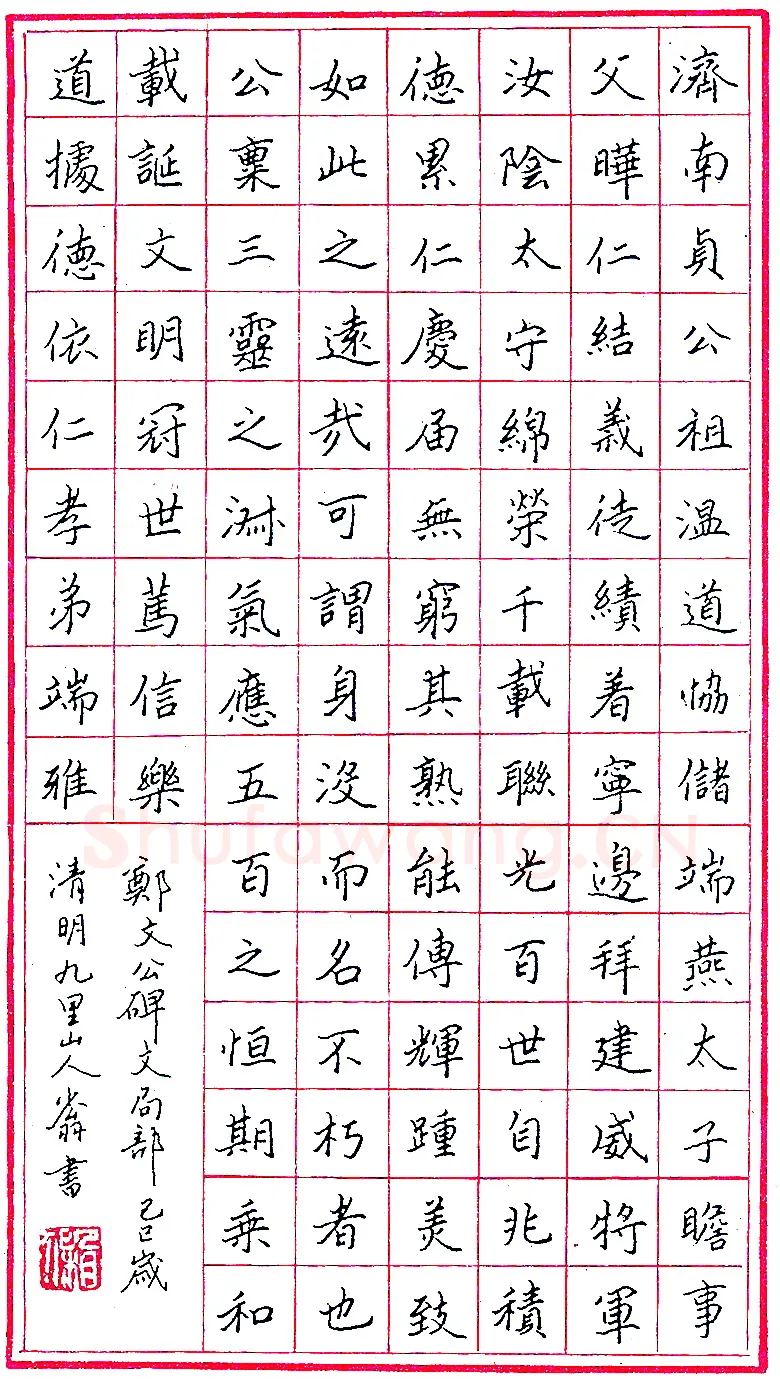 濟南貞公祖温道協儲端燕太子瞻事
父曄仁結義徒績着寧邊拜建威將軍
汝陰太守綿榮千載聯光百世自非積
德累仁慶届無窮其熟能傳輝踵美致
如此之遠哉可謂身沒而名不朽者也
公稟三靈之淑氣應五百之恒期乘和
載誕文明冠世篤信樂
道據德依仁孝弟端雅
鄭文公碑文局部己巳歲
清明九里山人翁書
Shufawang.CN